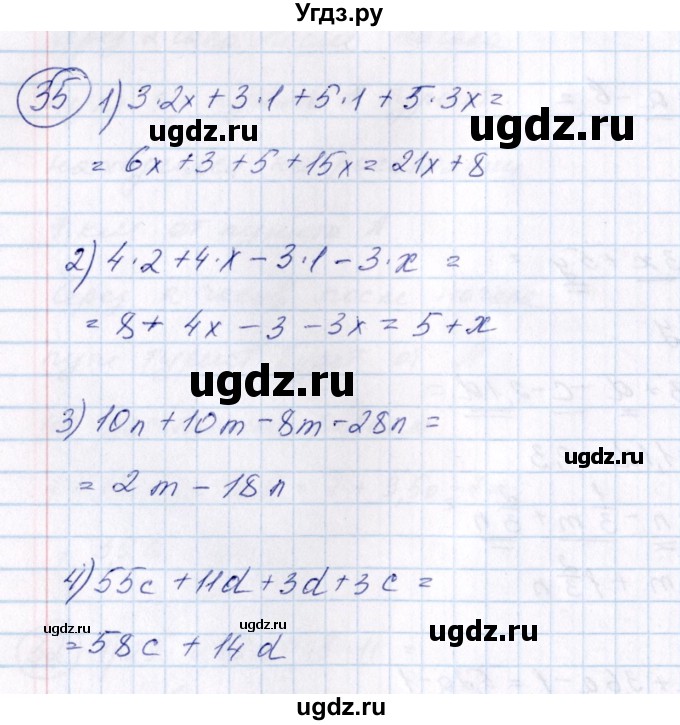 Угдз.ру
35 1) 3·2x + 3·1 + 5·1 + 5·3x =
ugdz.ru ugdz.ru
= 6x + 3 + 5 + 15x = 21x + 8
2) 4·2 + 4·x - 3·1 - 3·x =
= 8 + 4x - 3 - 3x = 5 + x
ugdz.ru
3) 10n + 10m - 8m - 28n =
= 2m - 18n
ugdz.ru
4) 55c + 11d + 3d + 3c =
ugdz.ru ugdz.ru ugdz.ru
= 58c + 14d